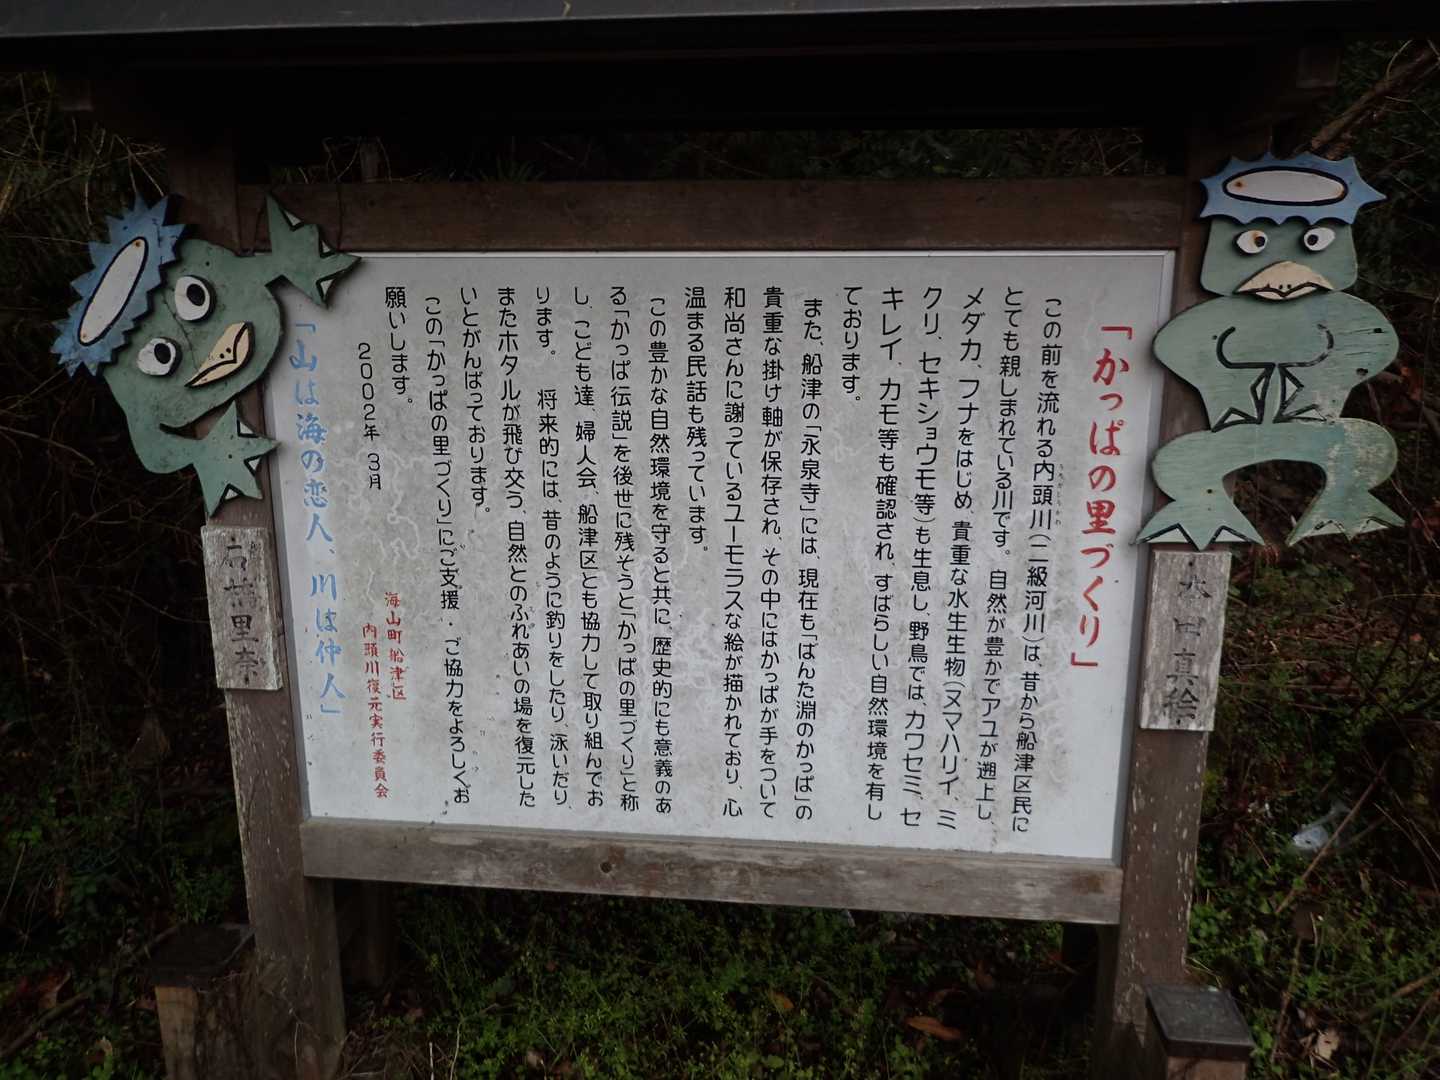 「かっぱの里づくり」
この前を流れる内頭川（二級河川）は、昔から船津区民に
とても親しまれている川です。自然が豊かでアユが遡上し、
メダカ、フナをはじめ、貴重な水生生物（ヌマハリイ、ミ
クリ、セキショウモ等）も生息し、野鳥では、カワセミ、セ
キレイ、カモ等も確認され、すばらしい自然環境を有し
ております。
また、船津の「永泉寺」には、現在も「ばんた淵のかっぱ」の
貴重な掛け軸が保存され、その中にはかっぱが手をついて
和尚さんに謝っているユーモラスな絵が描かれており、心
温まる民話も残っています。
この豊かな自然環境を守ると共に、歴史的にも意義のあ
る「かっぱ伝説」を後世に残そうと「かっぱの里づくり」と称
し、こども達、婦人会、船津区とも協力して取り組んでお
ります。 将来的には、昔のように釣りをしたり、泳いだり、
またホタルが飛び交う、自然とのふれあいの場を復元した
いとがんばっております。
この「かっぱの里づくり」にご支援・ご協力をよろしくお
願いします。
2002年 3月
海山町船津区
内頭川復元実行委員会
「山は海の恋人、川は仲人」
里奈
田真絵